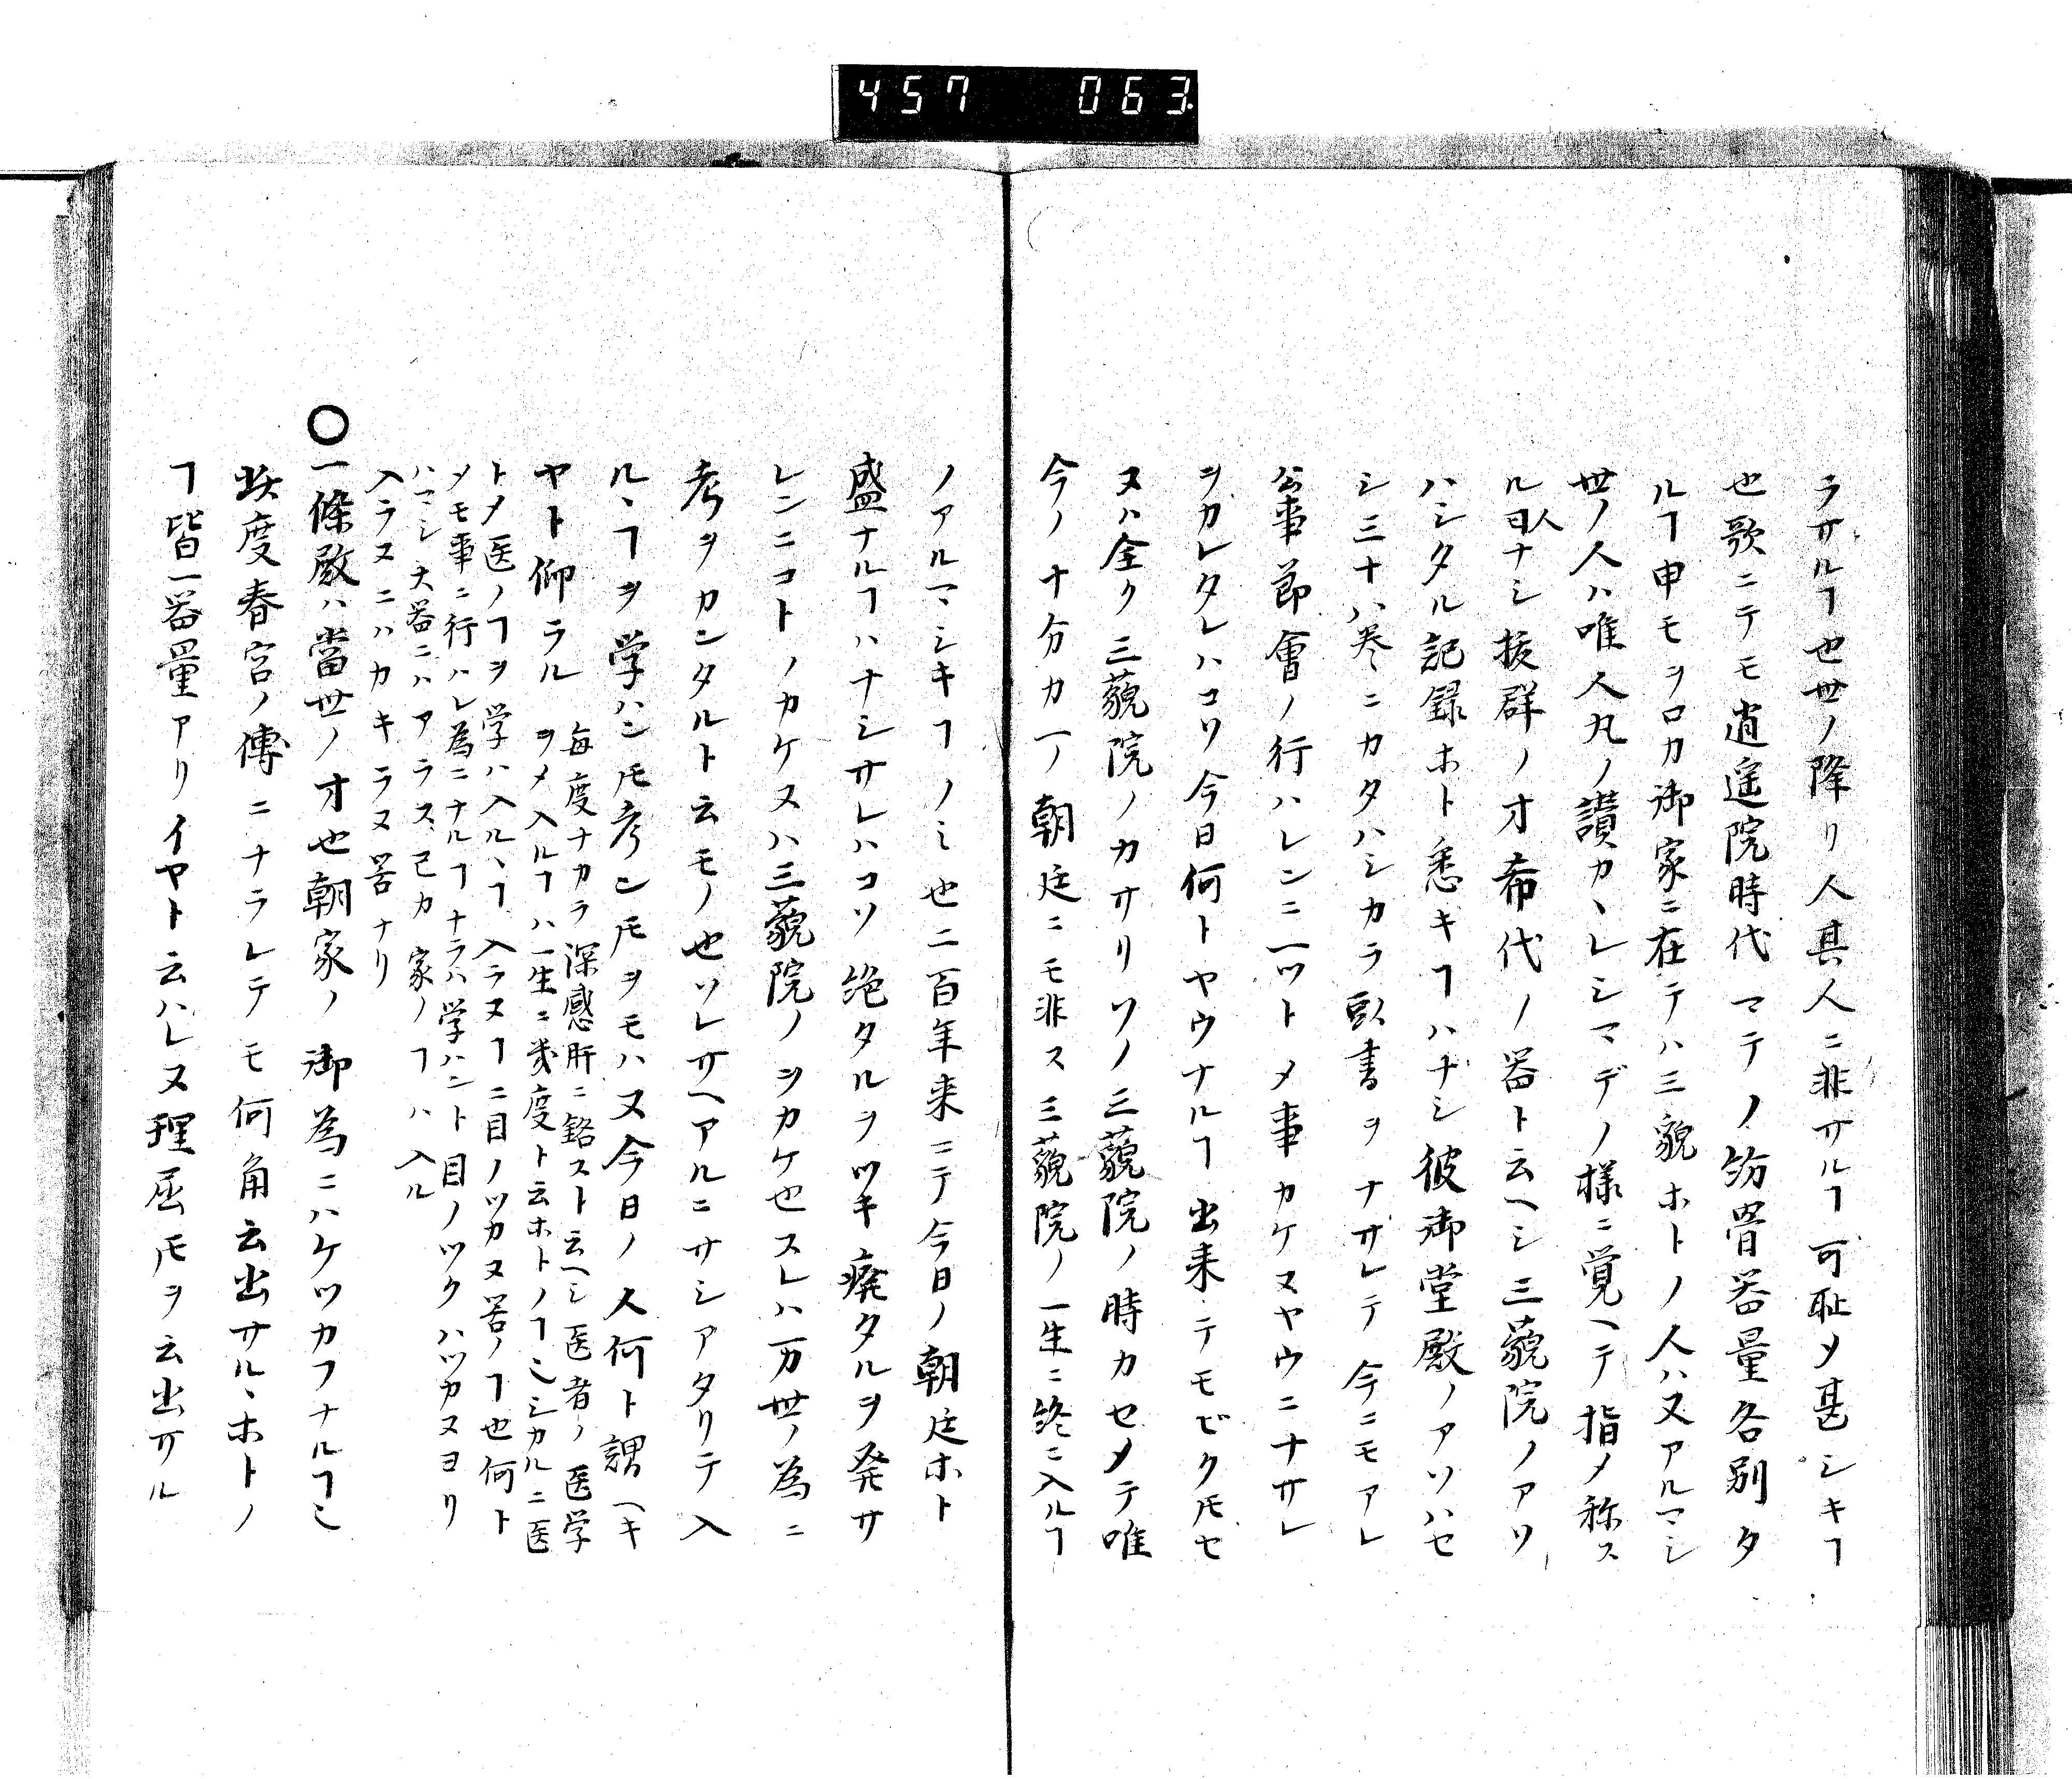 457 063
ラサルヿ也世ノ降リ人其人ニ非サルヿ可耻メ甚シキヿ
也歌ニテモ逍遥院時代マテノ紡胃器量各別タ
ルヿ申モヲロカ御家ニ在テハ三藐ホトノ人ハ又アルマシ
世ノ人ハ唯人丸ノ讃カヽレシマデノ様ニ覚ヘテ指メ称ス
ル人ナシ抜群ノ才希代ノ器ト云ヘシ三藐院ノアソ
ハシタル記録ホト悉キヿハナシ彼御堂殿ノアソハセ
シ三十八巻ニカタハシカラ臥書ヲナサレテ今ニモアレ
公事節會ノ行ハレンニ一ツトメ事カケヌヤウニナサレ
ヲカレタレハコソ今日何トヤウナルヿ出来テモビクトモセ
ヌハ全ク三藐院ノカサリソノ三藐院ノ時カセメテ唯
今ノ十分カ一ノ朝廷ニモ非ス三藐院ノ一生ニ終ニ入ルヿ
ノアルマシキヿノミ也二百年来ニテ今日ノ朝廷ホト
盛ナルヿハナシサレハコソ絶タルヲツキ廃タルヲ発サ
レンニコトノカケヌハ三藐院ノヲカケ也スレハ万世ノ為ニ
考ヲカンタルト云モノ也ソレサヘアルニサシアタリテ入
ルヽヿヲ学ハン𪜈考ン𪜈ヲモハヌ今日ノ人何ト謂ヘキ
ヤト仰ラル 毎度ナカラ深感肝ニ銘スト云ヘシ医者ノ医学
ヲメ入ルヿハ一生ニ幾度ト云ホトノヿ也シカルニ医
トメ医ノヿヲ学ハ入ルヽヿ入ラヌヿニ目ノツカヌ筈ノヿ也何ト
メモ事ニ行ハレ為ニナルヿナラハ学ハント目ノツクハツカヌヨリ
ハマシ大器ニハアラス己カ家ノヿハ入ル
入ラヌニハカキラヌ筈ナリ
〇一條殿ハ當世ノ才也朝家ノ御為ニハケツカフナルヿ也
此度春宮ノ傅ニナラレテモ何角云出サルヽホトノ
ヿ皆一器量アリイヤト云ハレヌ理屈𪜈ヲ云出サル